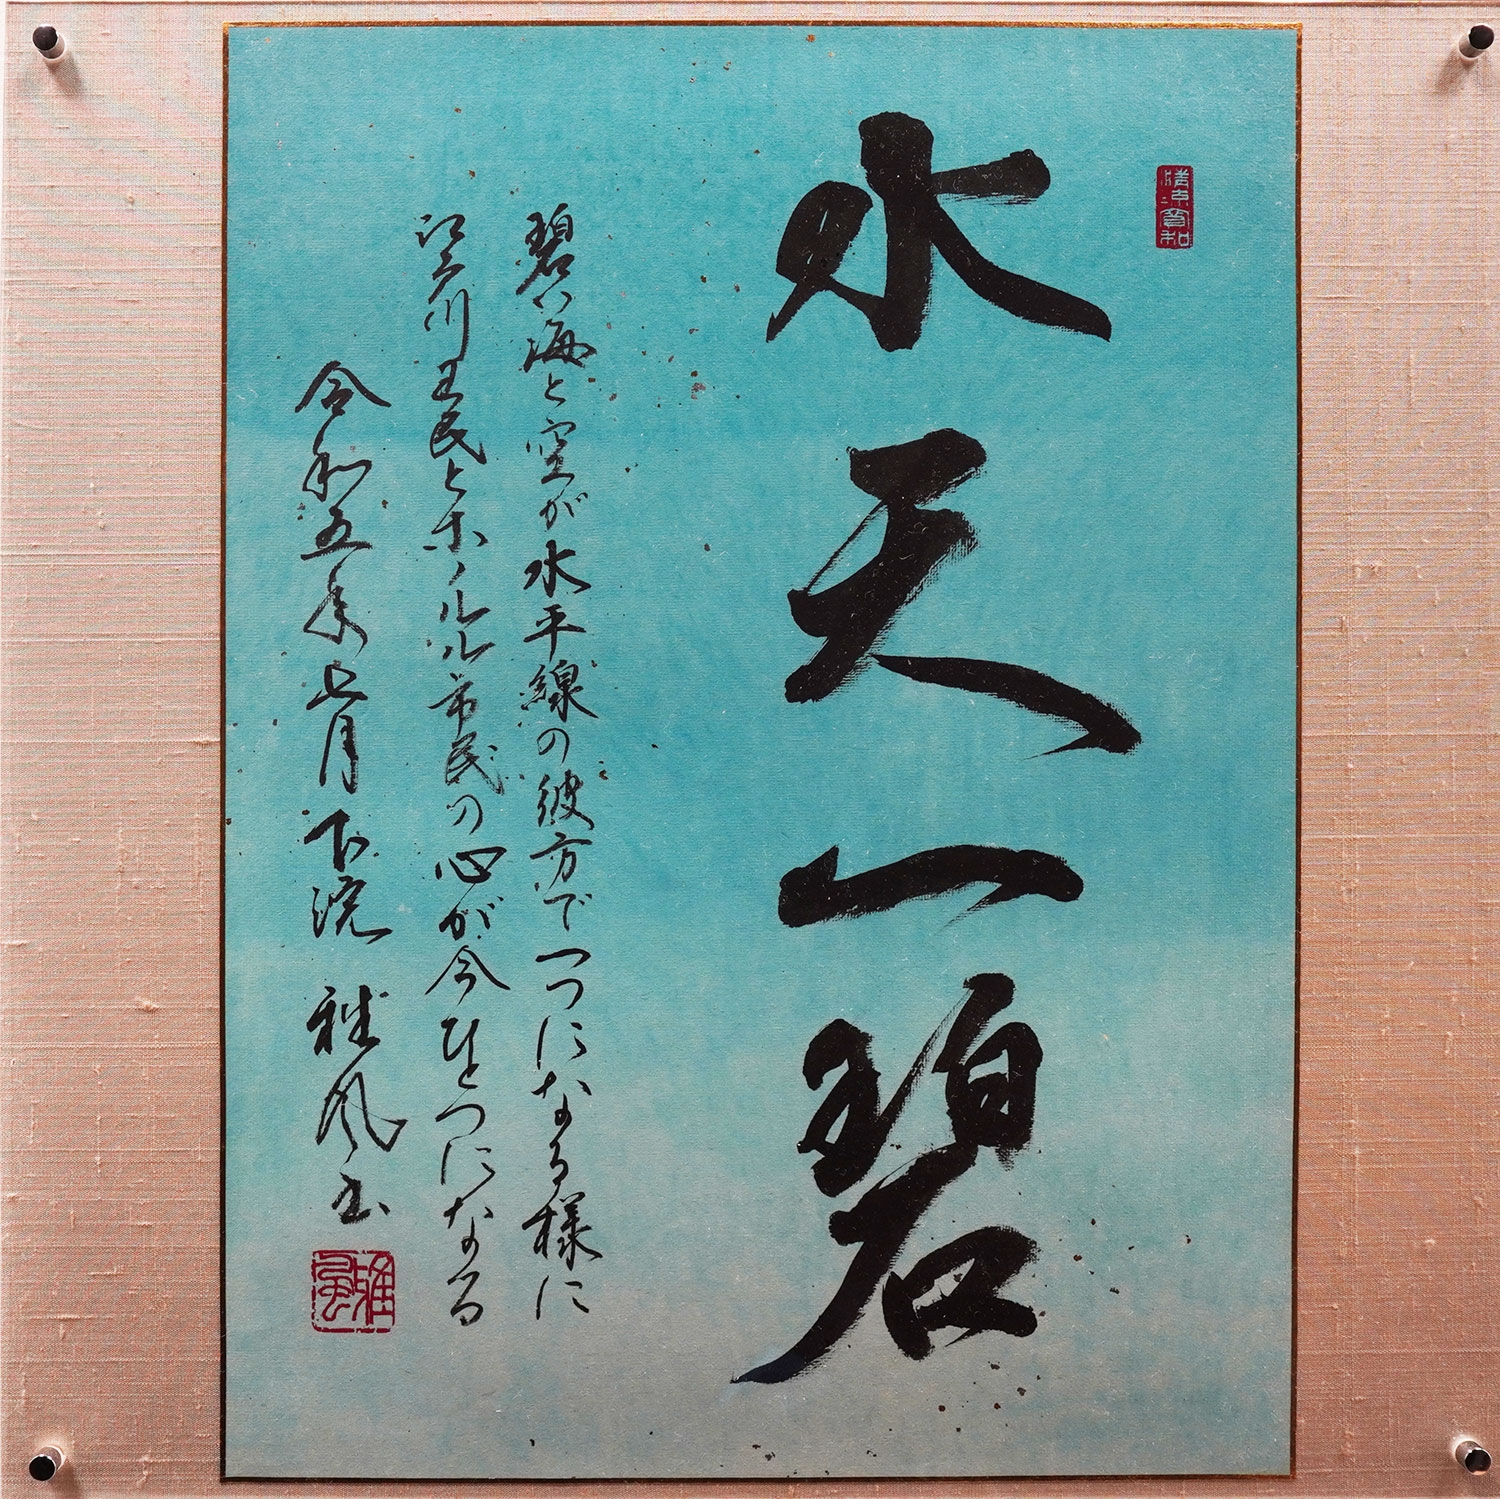 水天一碧
碧い海と空が水平線の彼方で一つになる様に
江戸川区民とホノルル市民の心が今ひとつになる
令和五年七月下浣 雅風書
雅風